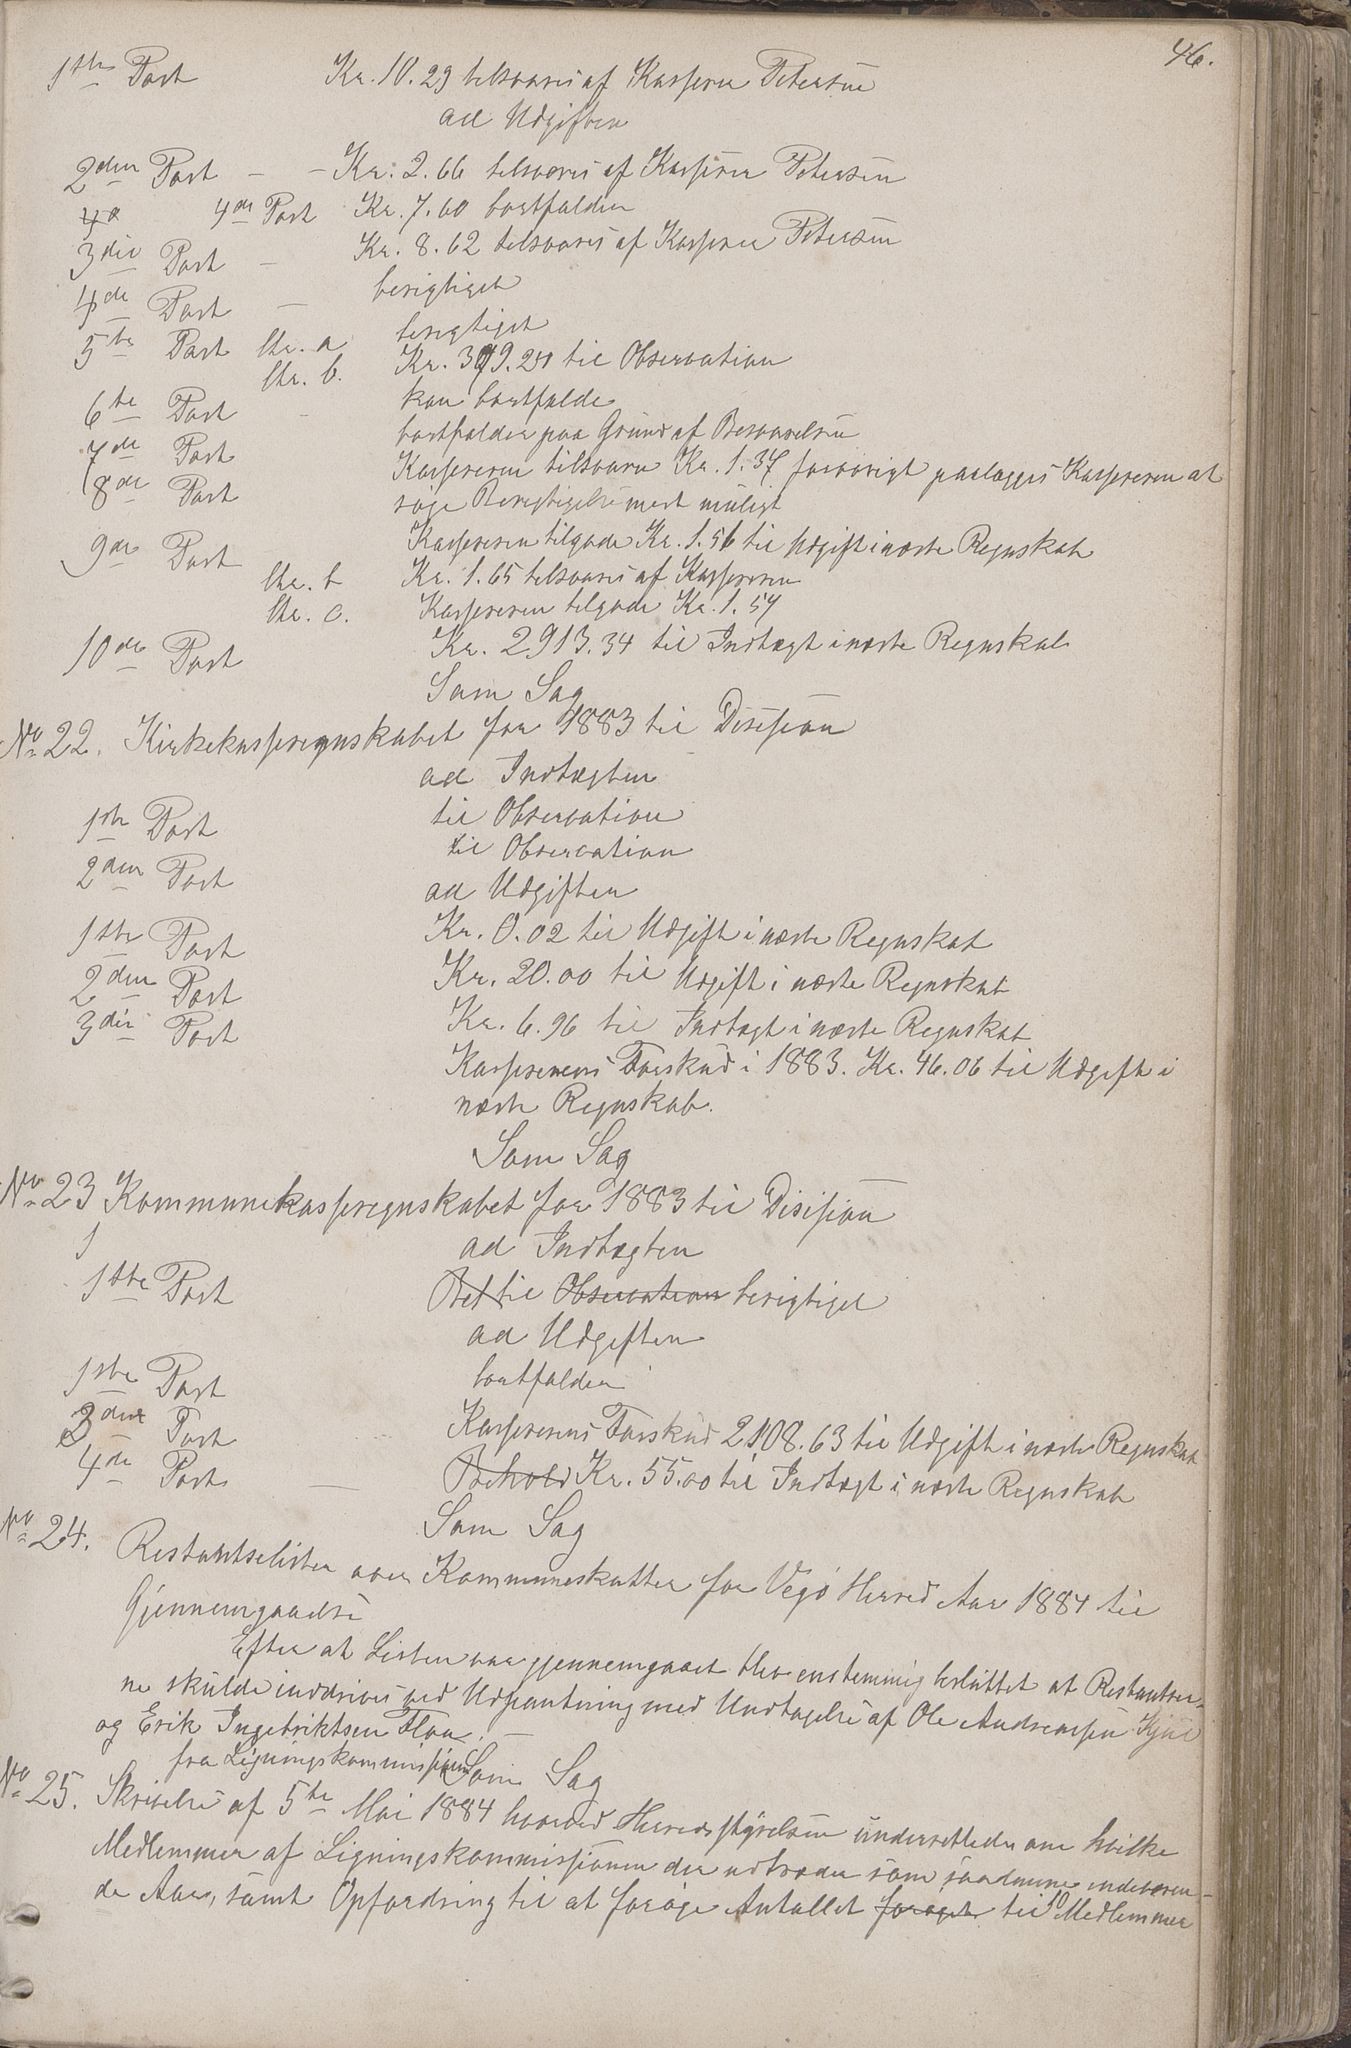 46.
1ste Post Kr. 10.29 tilsvares af Kasserer Petersen
ad Udgiften
2den Post — — Kr. 2.66 tilsvares af Kasserer Petersen
4d 4de Post Kr. 7.60 bortfalder
3die Post — Kr. 8.62 tilsvares af Kasserer Petersen
4de Post — berigtiget
5te Post Ltr. a berigtiget
Ltr. b. Kr. 379.251 til Observation
6te Post — kan bortfalde
7de Post bortfalder paa Grund af Besvarelsen
8de Post Kassereren tilsvarer Kr. 1.37 forøvrigt paalægges Kassereren at
søge Berigtigelse mest muligt
9de Post Kassereren tilgode Kr. 1.56 til Udgift i næste Regnskab
Ltr. b Kr. 1.65 tilsvares af Kassereren
Ltr. c. Kassereren tilgode Kr. 1.54
10de Post Kr. 2913.34 til Indtægt i næste Regnskab
Som Sag
No 22. Kirkekasseregnskabet for 1883 til Disision
ad Indtægten
1ste Post til Observation
2den Post til Observation
ad Udgiften
1ste Post Kr. 0.02 til Udgift i næste Regnskab
2den Post Kr. 20.00 til Udgift i næste Regnskab
3die Post Kr. 6.96 til Indtægt i næste Regnskab
Kassererens Forskud i 1883. Kr. 46.06 til Udgift i
næste Regnskab.
Som Sag
No 23 Kommunekasseregnskabet for 1883 til Disision
1 ad Indtægten
1ste Post til Observation berigtiget
ad Udgiften
1ste Post bortfalder
Post Kassererens Forskud 2108.63 til Udgift i næste Regnskab
4de Post — Behold Kr. 55.00 til Indtægt i næste Regnskab
Som Sag
No 24. Restantselister over Kommuneskatter for Vegø Herred Aar 1884 til
Gjennemgaaelse
Efter at Listen var gjennemgaaet blev enstemmig besluttet at Restantser-
ne skulde inddrives ved Udpantning med Undtagelse af Ole Andreassen
og Erik Ingebriktsen Floa. —
fra Ligningskommissionen Som Sag
No 25. Skrivelse af 5te Mai 1884 hvorved Herredsstyrelsen underrettedes om hvilke
Medlemmer af Ligningskommissionen der udtræder som saadanne indeværen-
de Aar, samt Opfordring til at forøge Antallet forøget til 10 Medlemmer